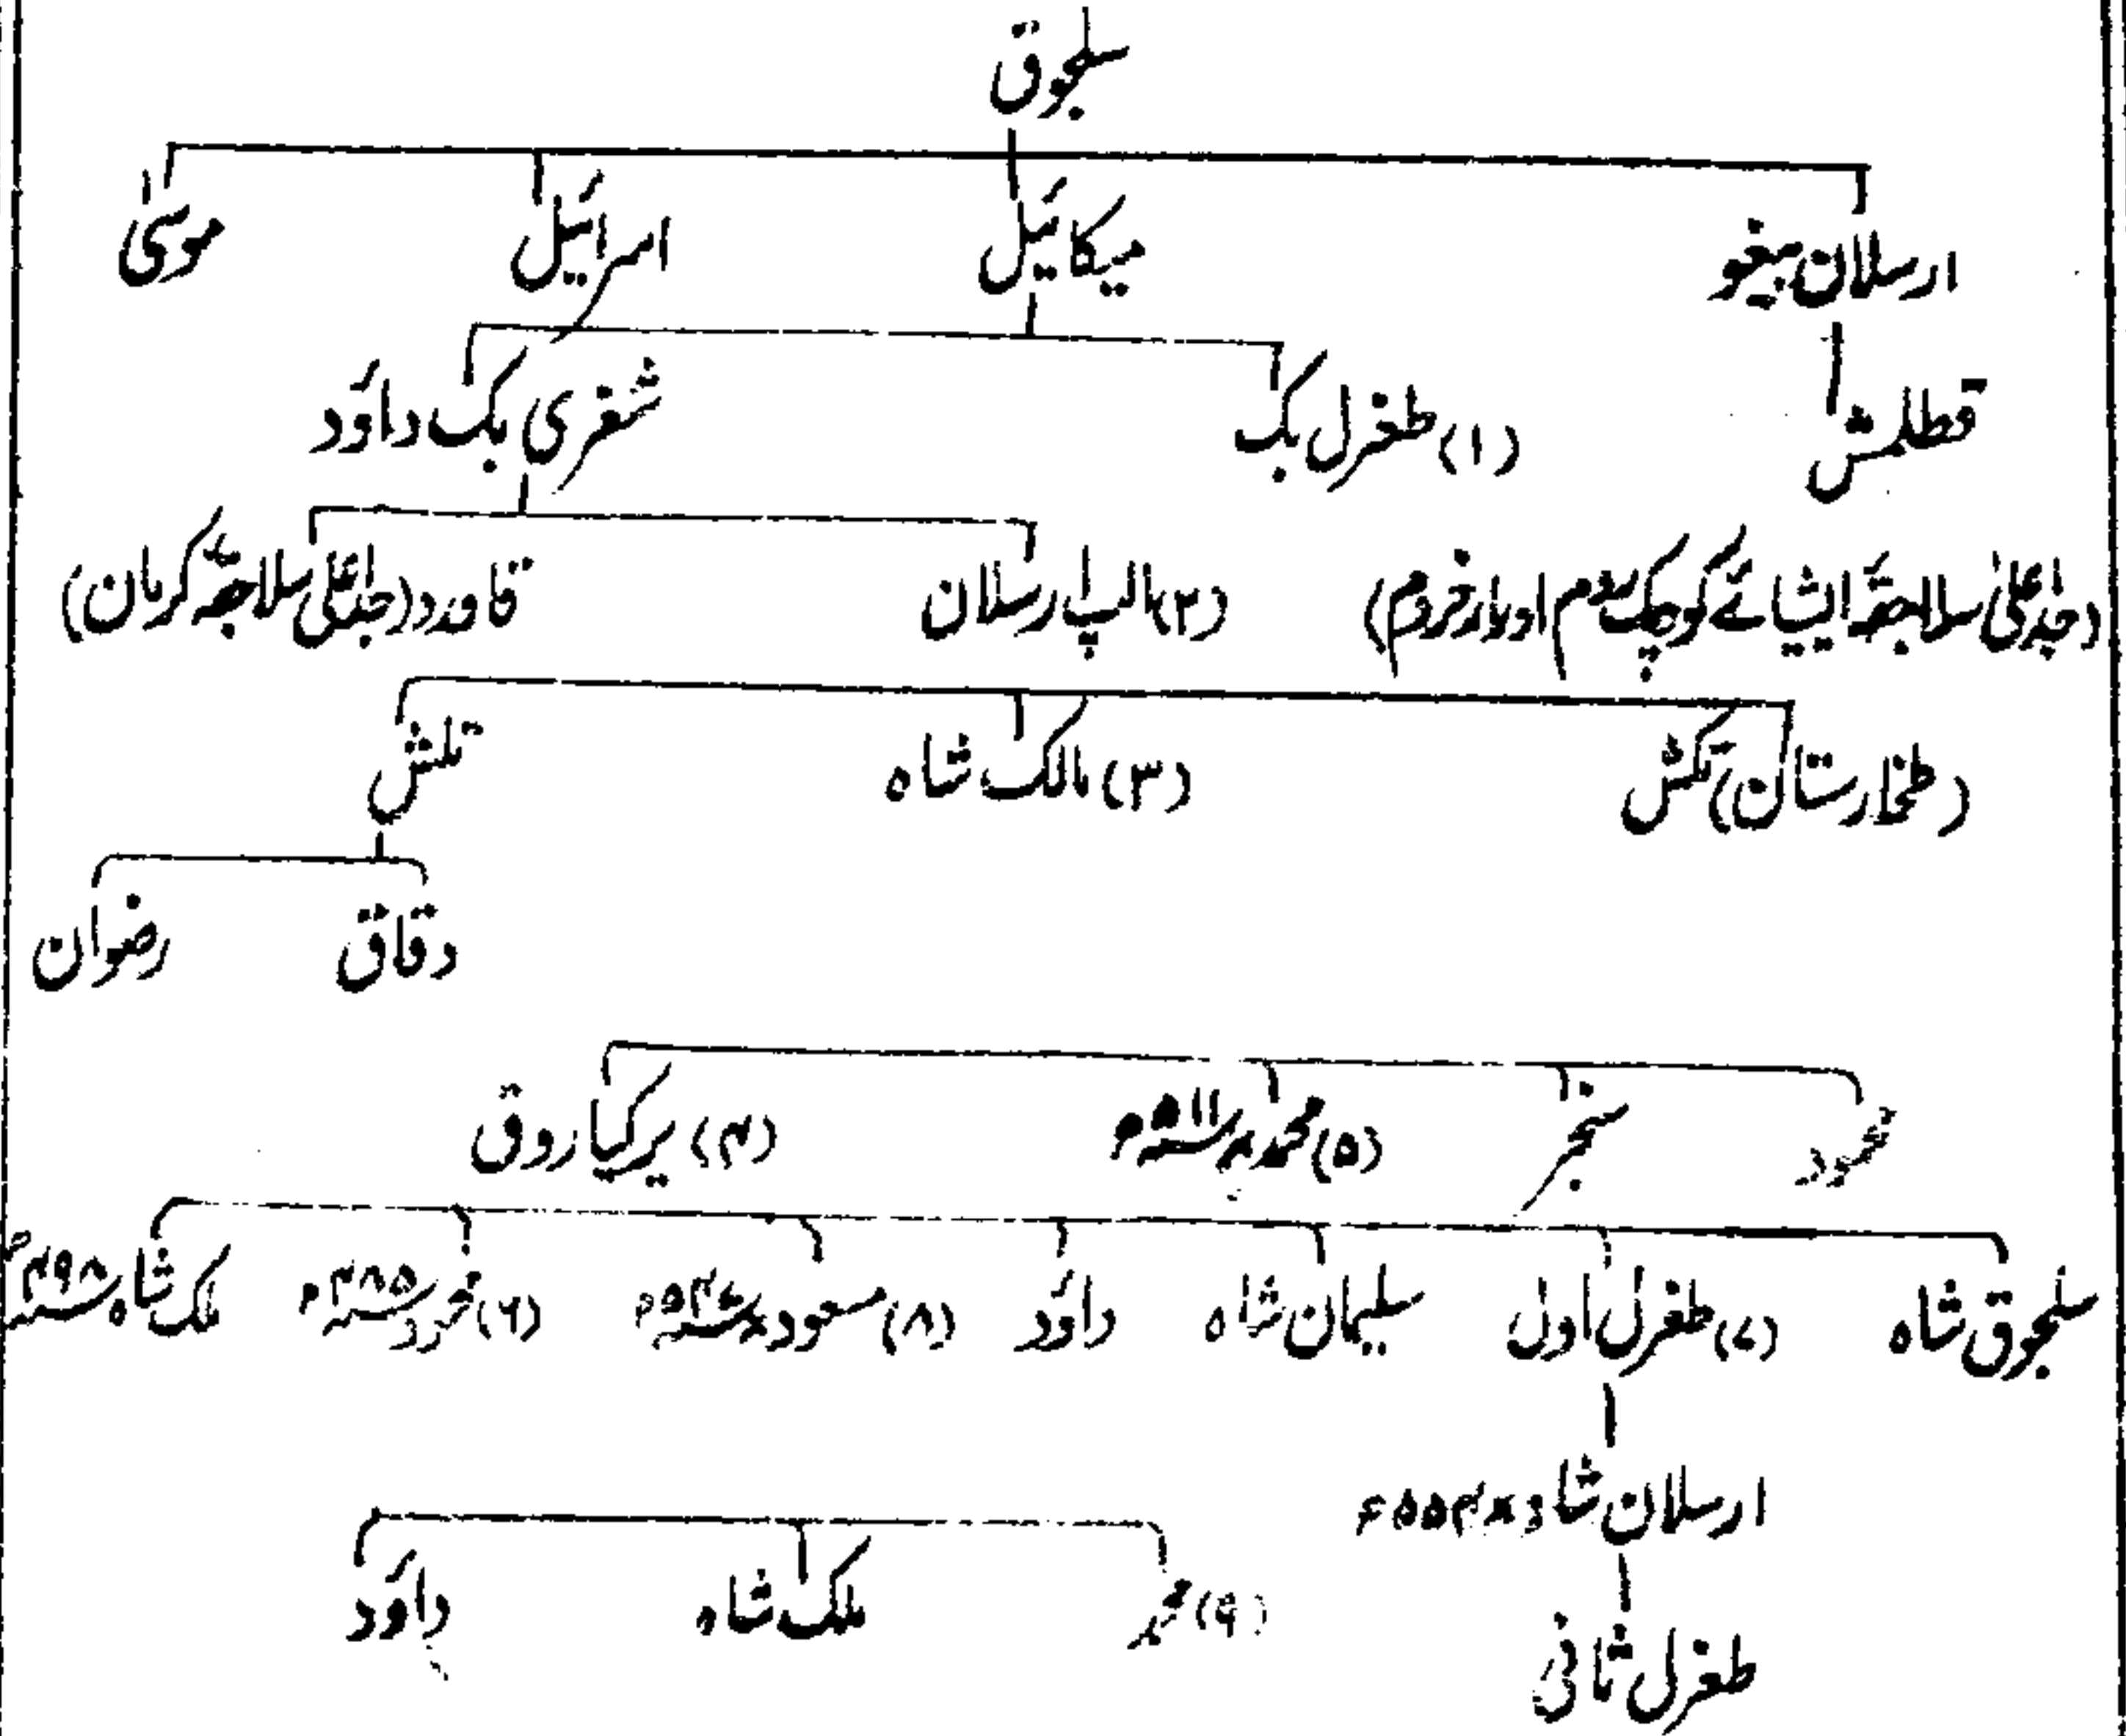 سلجوق
ارسلان بیغو میکائیل اسرائیل موسیٰ
قطلمش (۱) طغرل بک شغری بک داؤد
(جد اعلیٰ سلاجقۂ ایشیائے کوچک روم اور ارزفروم) (۲) الپ ارسلان قاورد (جد اعلیٰ سلاجقۂ کرمان)
(طخارستان) تکش (۳) مالک شاہ تلش
دقاق رضوان
محمود سنجر (۵) محمد ۵۱۱ (۴) برکیاروق
سلجوق شاہ (۷) طغرل اول سلیمان شاہ داؤد (۸) مسعود (۶) ۴۸۵ ملک شاہ ۴۹۸
ارسلان شاہ
(۹) ملک شاہ داؤد
طغرل ثانی